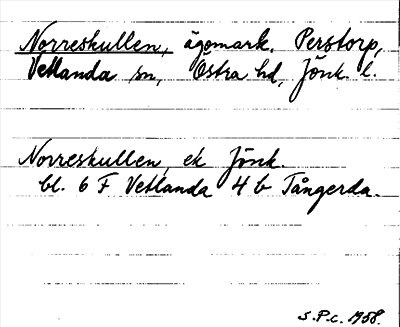 Norreskullen, ägomark. Perstorp,
Vetlanda sn, Östra hd, Jönk. l.
Norreskullen, ek Jönk.
bl. 6 F Vetlanda 4 b Tångerda.
S.P.c. 1958.